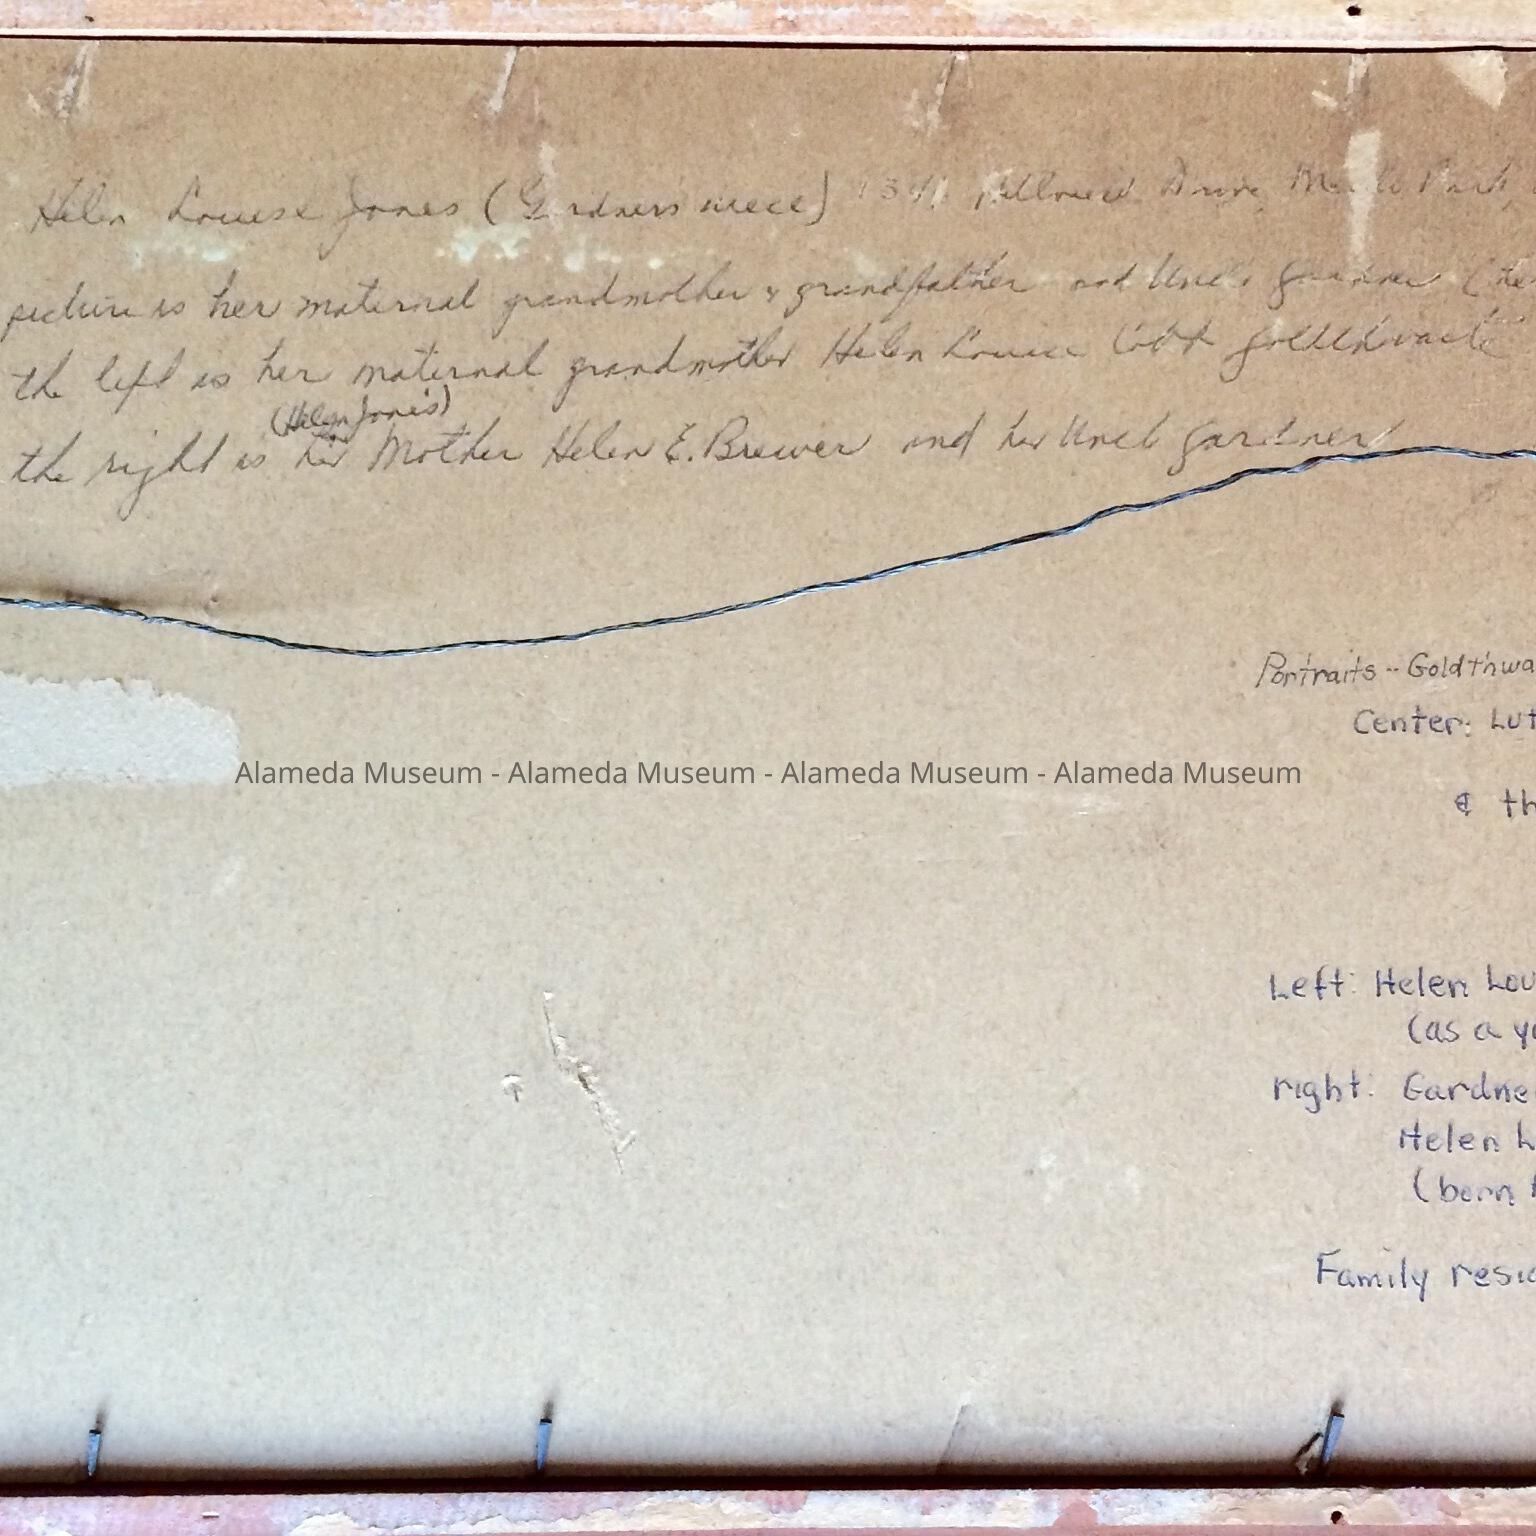 Helen Louise Jones (Gardner's niece) Drive Menlo Park,
picture is her maternal grandmother & grandfather and Uncle Gardner (the
the left is her maternal grandmother Helen Louise Cobb Goldthwaite
(Helen Jones)
the right is her Mother Helen E. Brewer and her Uncle Gardner
Portraits -- Goldthwa
Center: Lut
Alameda Museum - Alameda Museum - Alameda Museum - Alameda Museum
& th
Left: Helen Lou
(as a yo
right: Gardne
Helen L
(born
Family resid